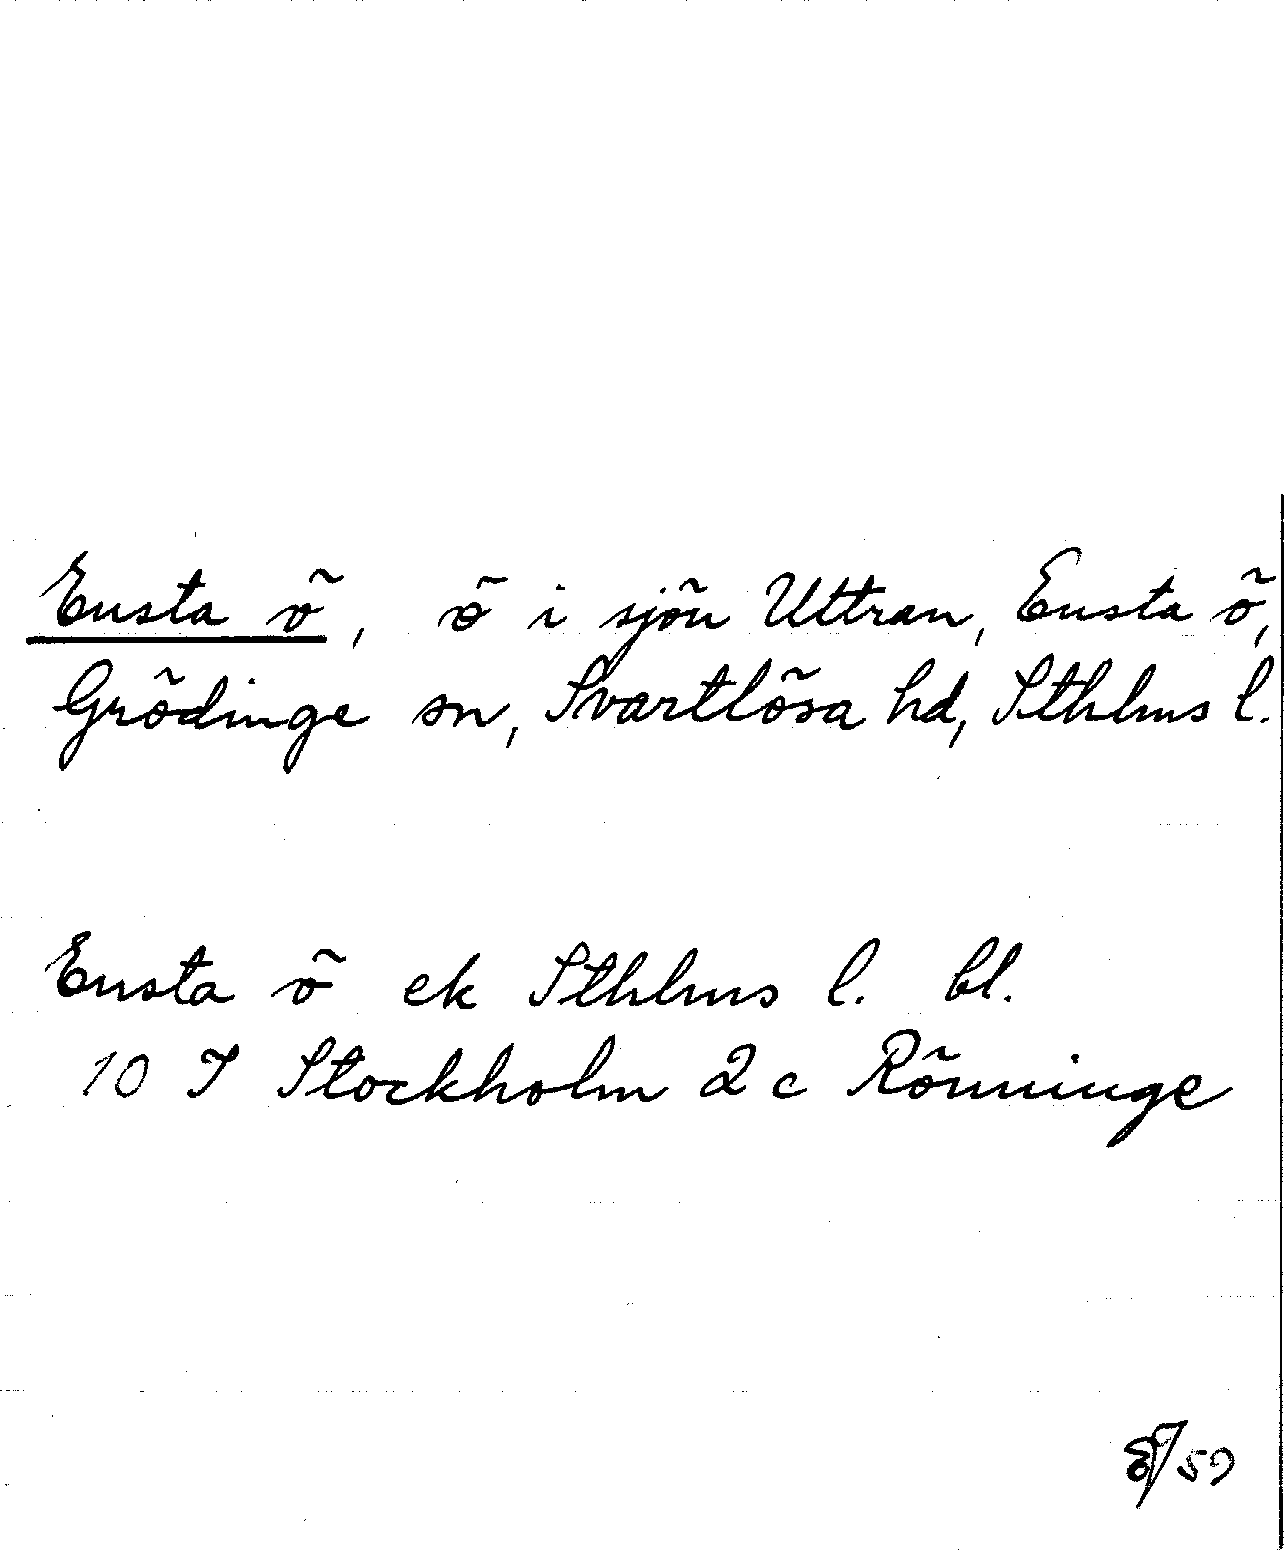 Ensta ö, ö i sjön Uttran, Ensta ö,
Grödinge sn, Svartlösa hd, Sthlms l.
Ensta ö ek Sthlms l. bl.
10 I Stockholm 2 c Rönninge
59